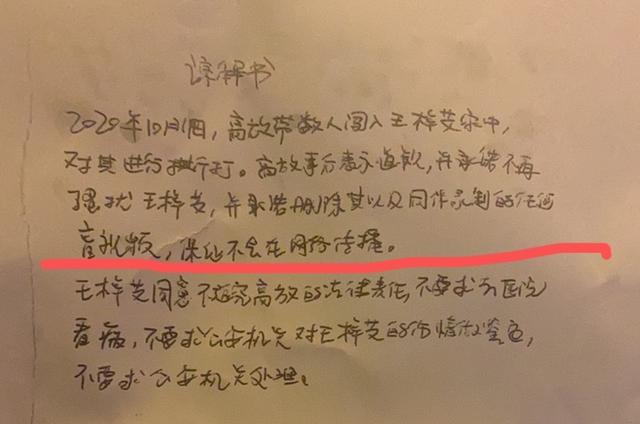 谅解书
2020年10月1日,高放带数人闯入王梓芝家中,
对其进行拳打。高放事后表示道歉,并承诺不再
骚扰王梓芝,并承诺删除其以及同伴录制的任何
音视频,保证不会在网络传播。
王梓芝同意不追究高放的法律责任,不要求去医院
看病,不要求公安机关对王梓芝的伤情做鉴定,
不要求公安机关处理。